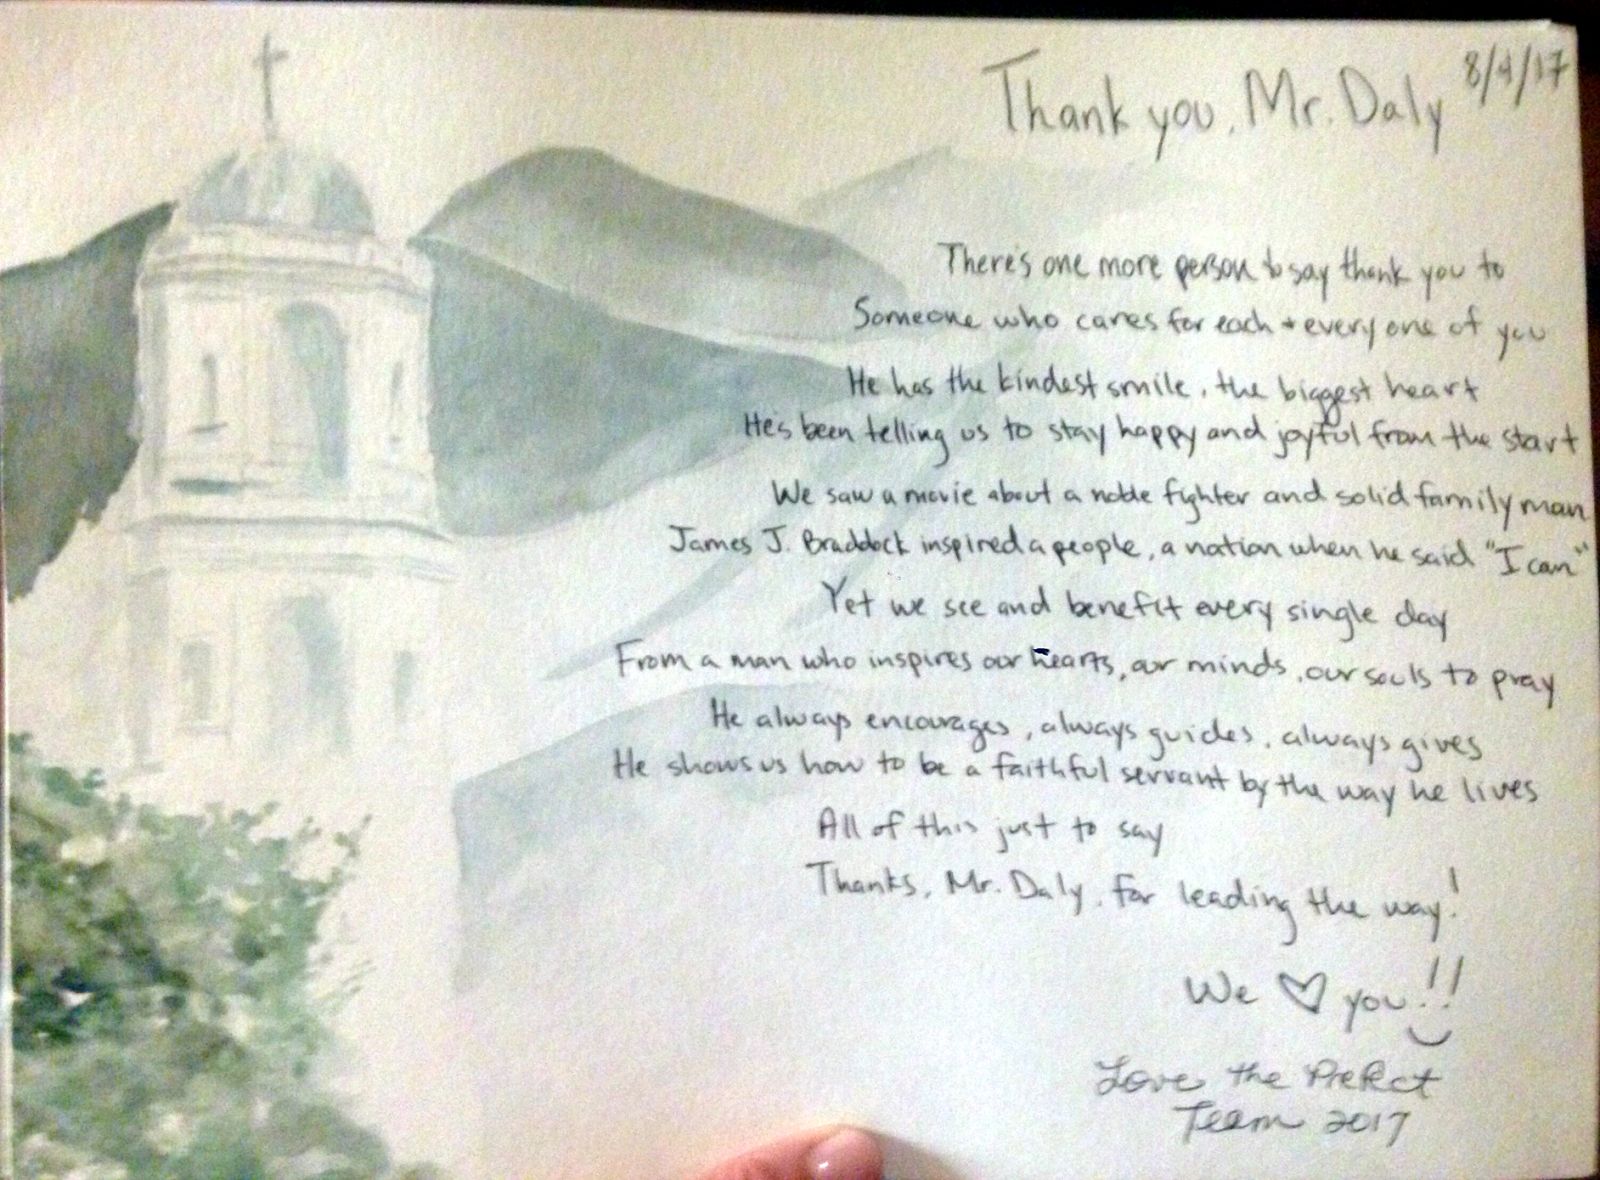 8/4/17
Thank you, Mr. Daly
There's one more person to say thank you to
Someone who cares for each + every one of you
He has the kindest smile, the biggest heart
He's been telling us to stay happy and joyful from the start
We saw a movie about a noble fighter and solid family man
James J. Braddock inspired a people, a nation when he said "I can"
Yet we see and benefit every single day
From a man who inspires our hearts, our minds, our souls to pray
He always encourages, always guides, always gives
He shows us how to be a faithful servant by the way he lives
All of this just to say
Thanks, Mr. Daly, for leading the way!
We ♡ you!!
Love the Prefect
Team 2017